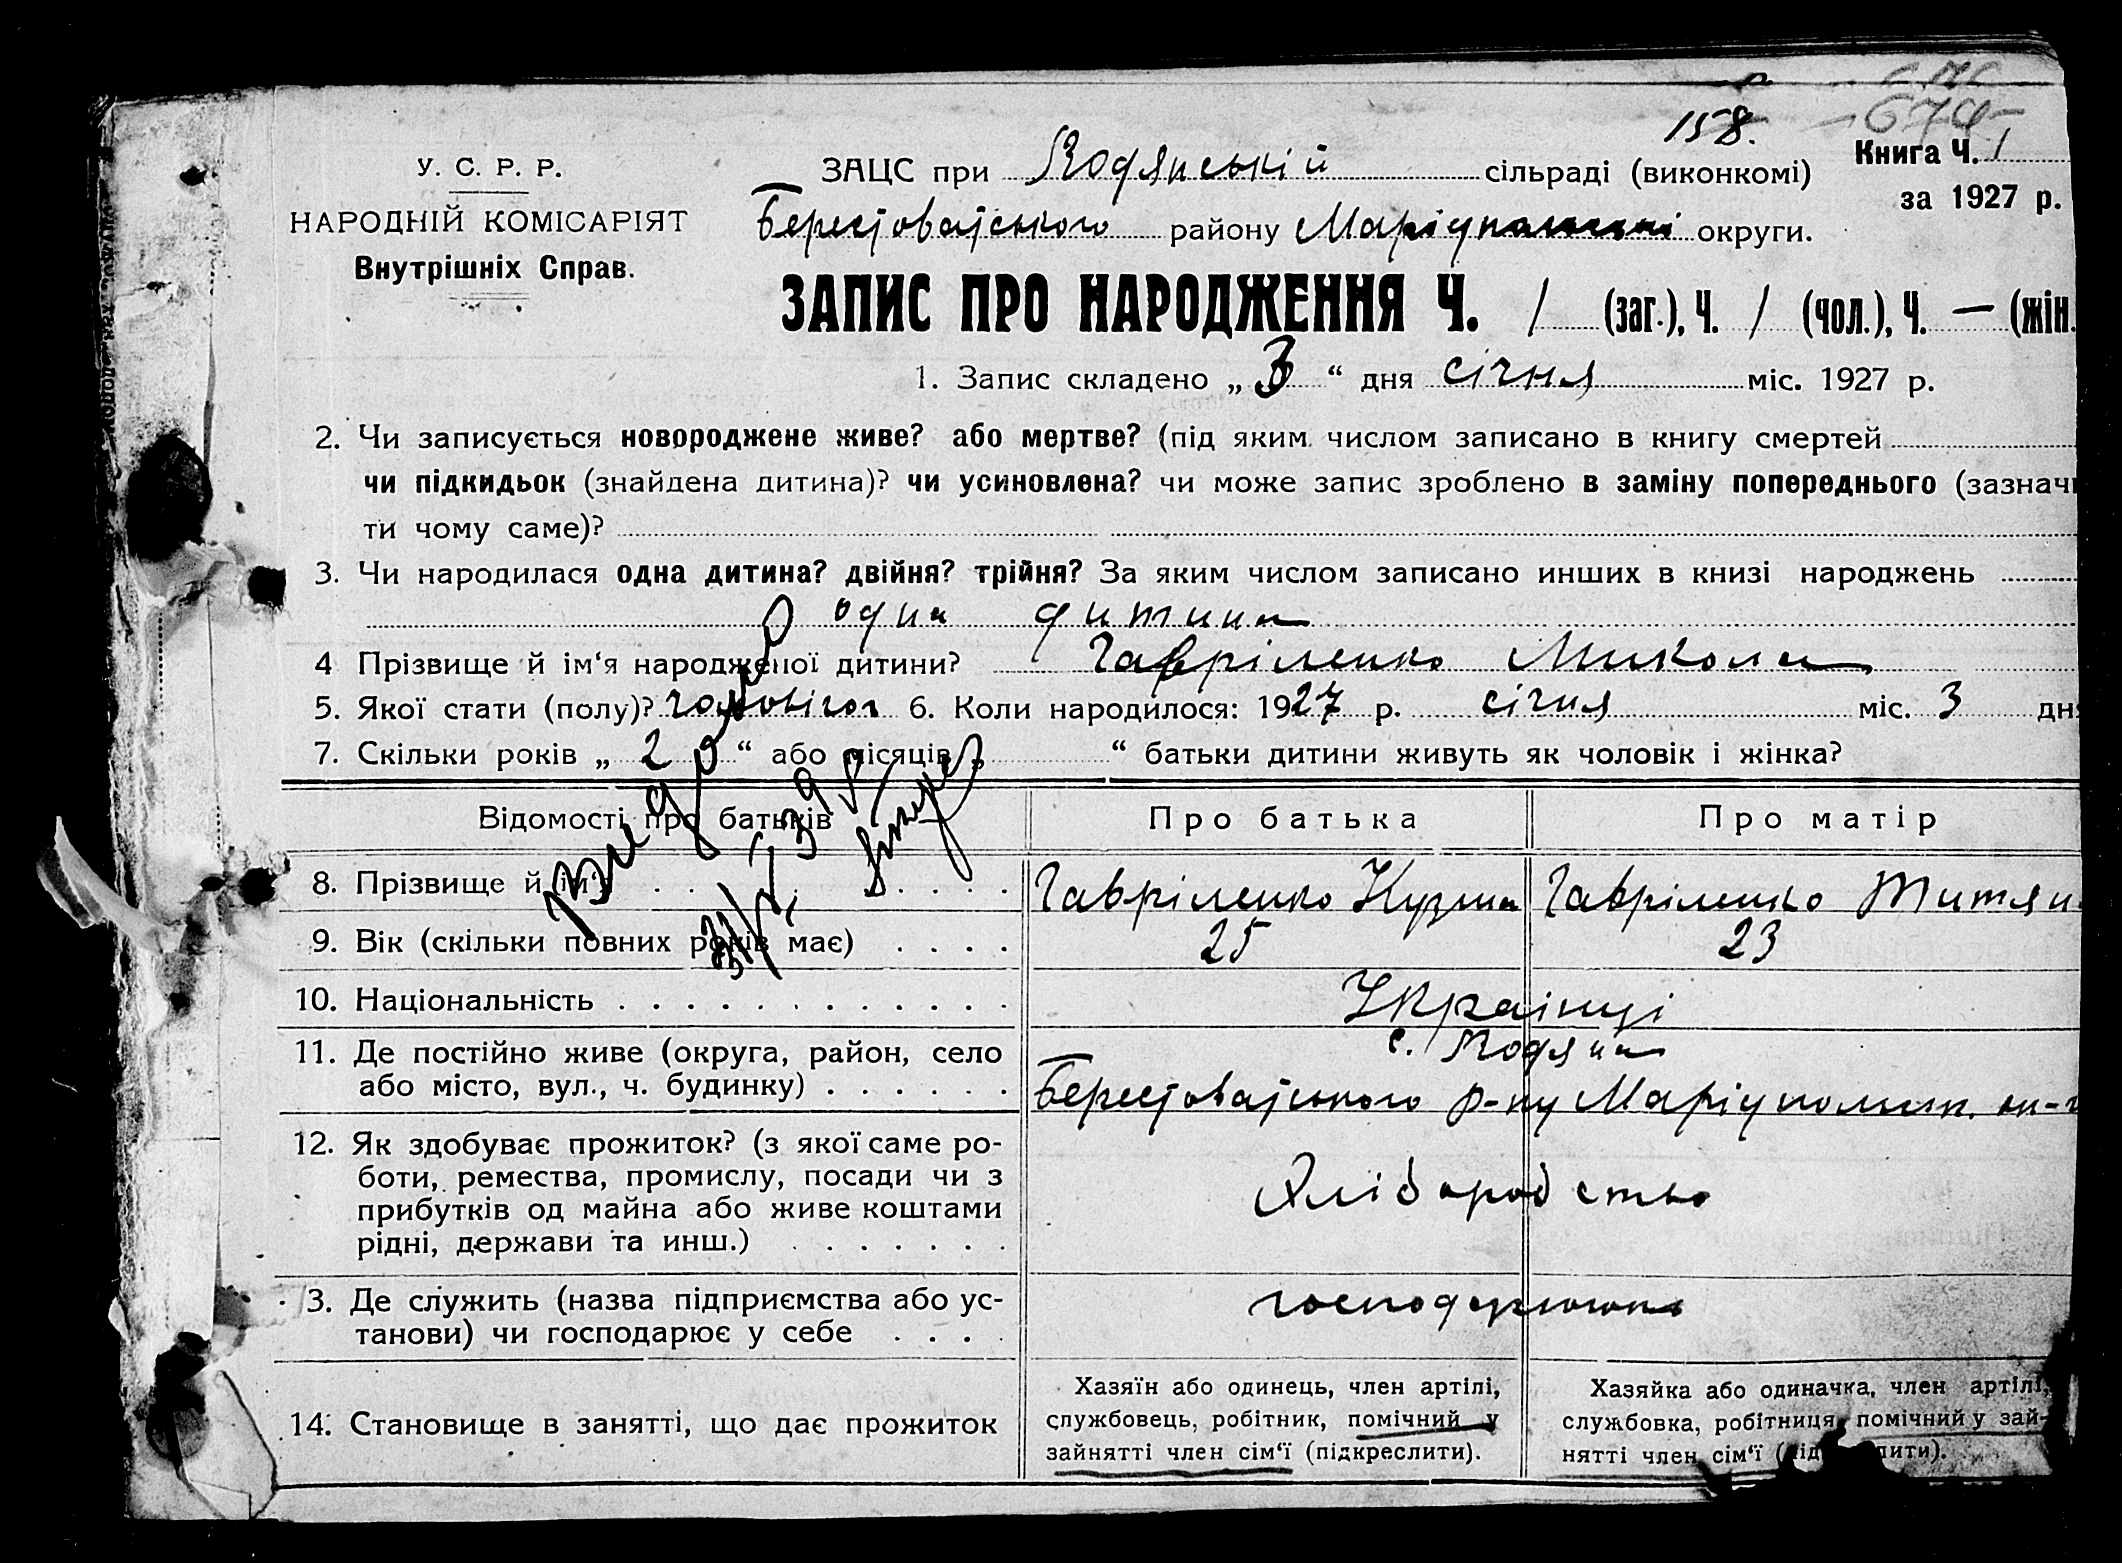 158.
674
У. С. Р. Р.
НАРОДНІЙ КОМІСАРІЯТ
Внутрішніх Справ.
ЗАЦС при Водянській сільраді (виконкомі)
Книга Ч. 1
за 1927 р.
Берестоватського району Маріупольські округи.
ЗАПИС ПРО НАРОДЖЕННЯ Ч. 1 (заг.), Ч. 1 (чол.), Ч. — (жін.
1. Запис складено „ 3 “ дня січня міс. 1927 р.
2. Чи записується новороджене живе? або мертве? (під яким числом записано в книгу смертей
чи підкидьок (знайдена дитина)? чи усиновлена? чи може запис зроблено в заміну попереднього (зазначи
ти чому саме)?
3. Чи народилася одна дитина? двійня? трійня? За яким числом записано инших в книзі народжень
одна дитина
4 Прізвище й ім‘я народженої дитини? Гавріленко Микола
5. Якої стати (полу)? чоловічої 6. Коли народилося: 1927 р. січня міс. 3 дня
7. Скільки років „ 2 “ або місяців „ “ батьки дитини живуть як чоловік і жінка?
Відомості про батьків Про батька Про матір
8. Прізвище й ім‘я . . . . . . . Гавріленко Кузма Гавріленко Титян
9. Вік (скільки повних років має) . . . . 25 23
10. Національність . . . . . . . . . . . . . Українці
11. Де постійно живе (округа, район, село
або місто, вул., ч. будинку) . . . . . .
с. Водяна
Берестоватського р-ну Маріуполськ. ок-
12. Як здобуває прожиток? (з якої саме ро-
боти, ремества, промислу, посади чи з
прибутків од майна або живе коштами
рідні, держави та инш.) . . . . . . .
Хліборобство
3. Де служить (назва підприємства або ус-
танови) чи господарює у себе . . . .
господарюють
14. Становище в занятті, що дає прожиток
Хазяїн або одинець, член артілі,
службовець, робітник, помічний у
зайнятті член сім‘ї (підкреслити).
Хазяйка або одиначка, член артілі,
службовка, робітниця, помічний у зай-
нятті член сім‘ї
Видано